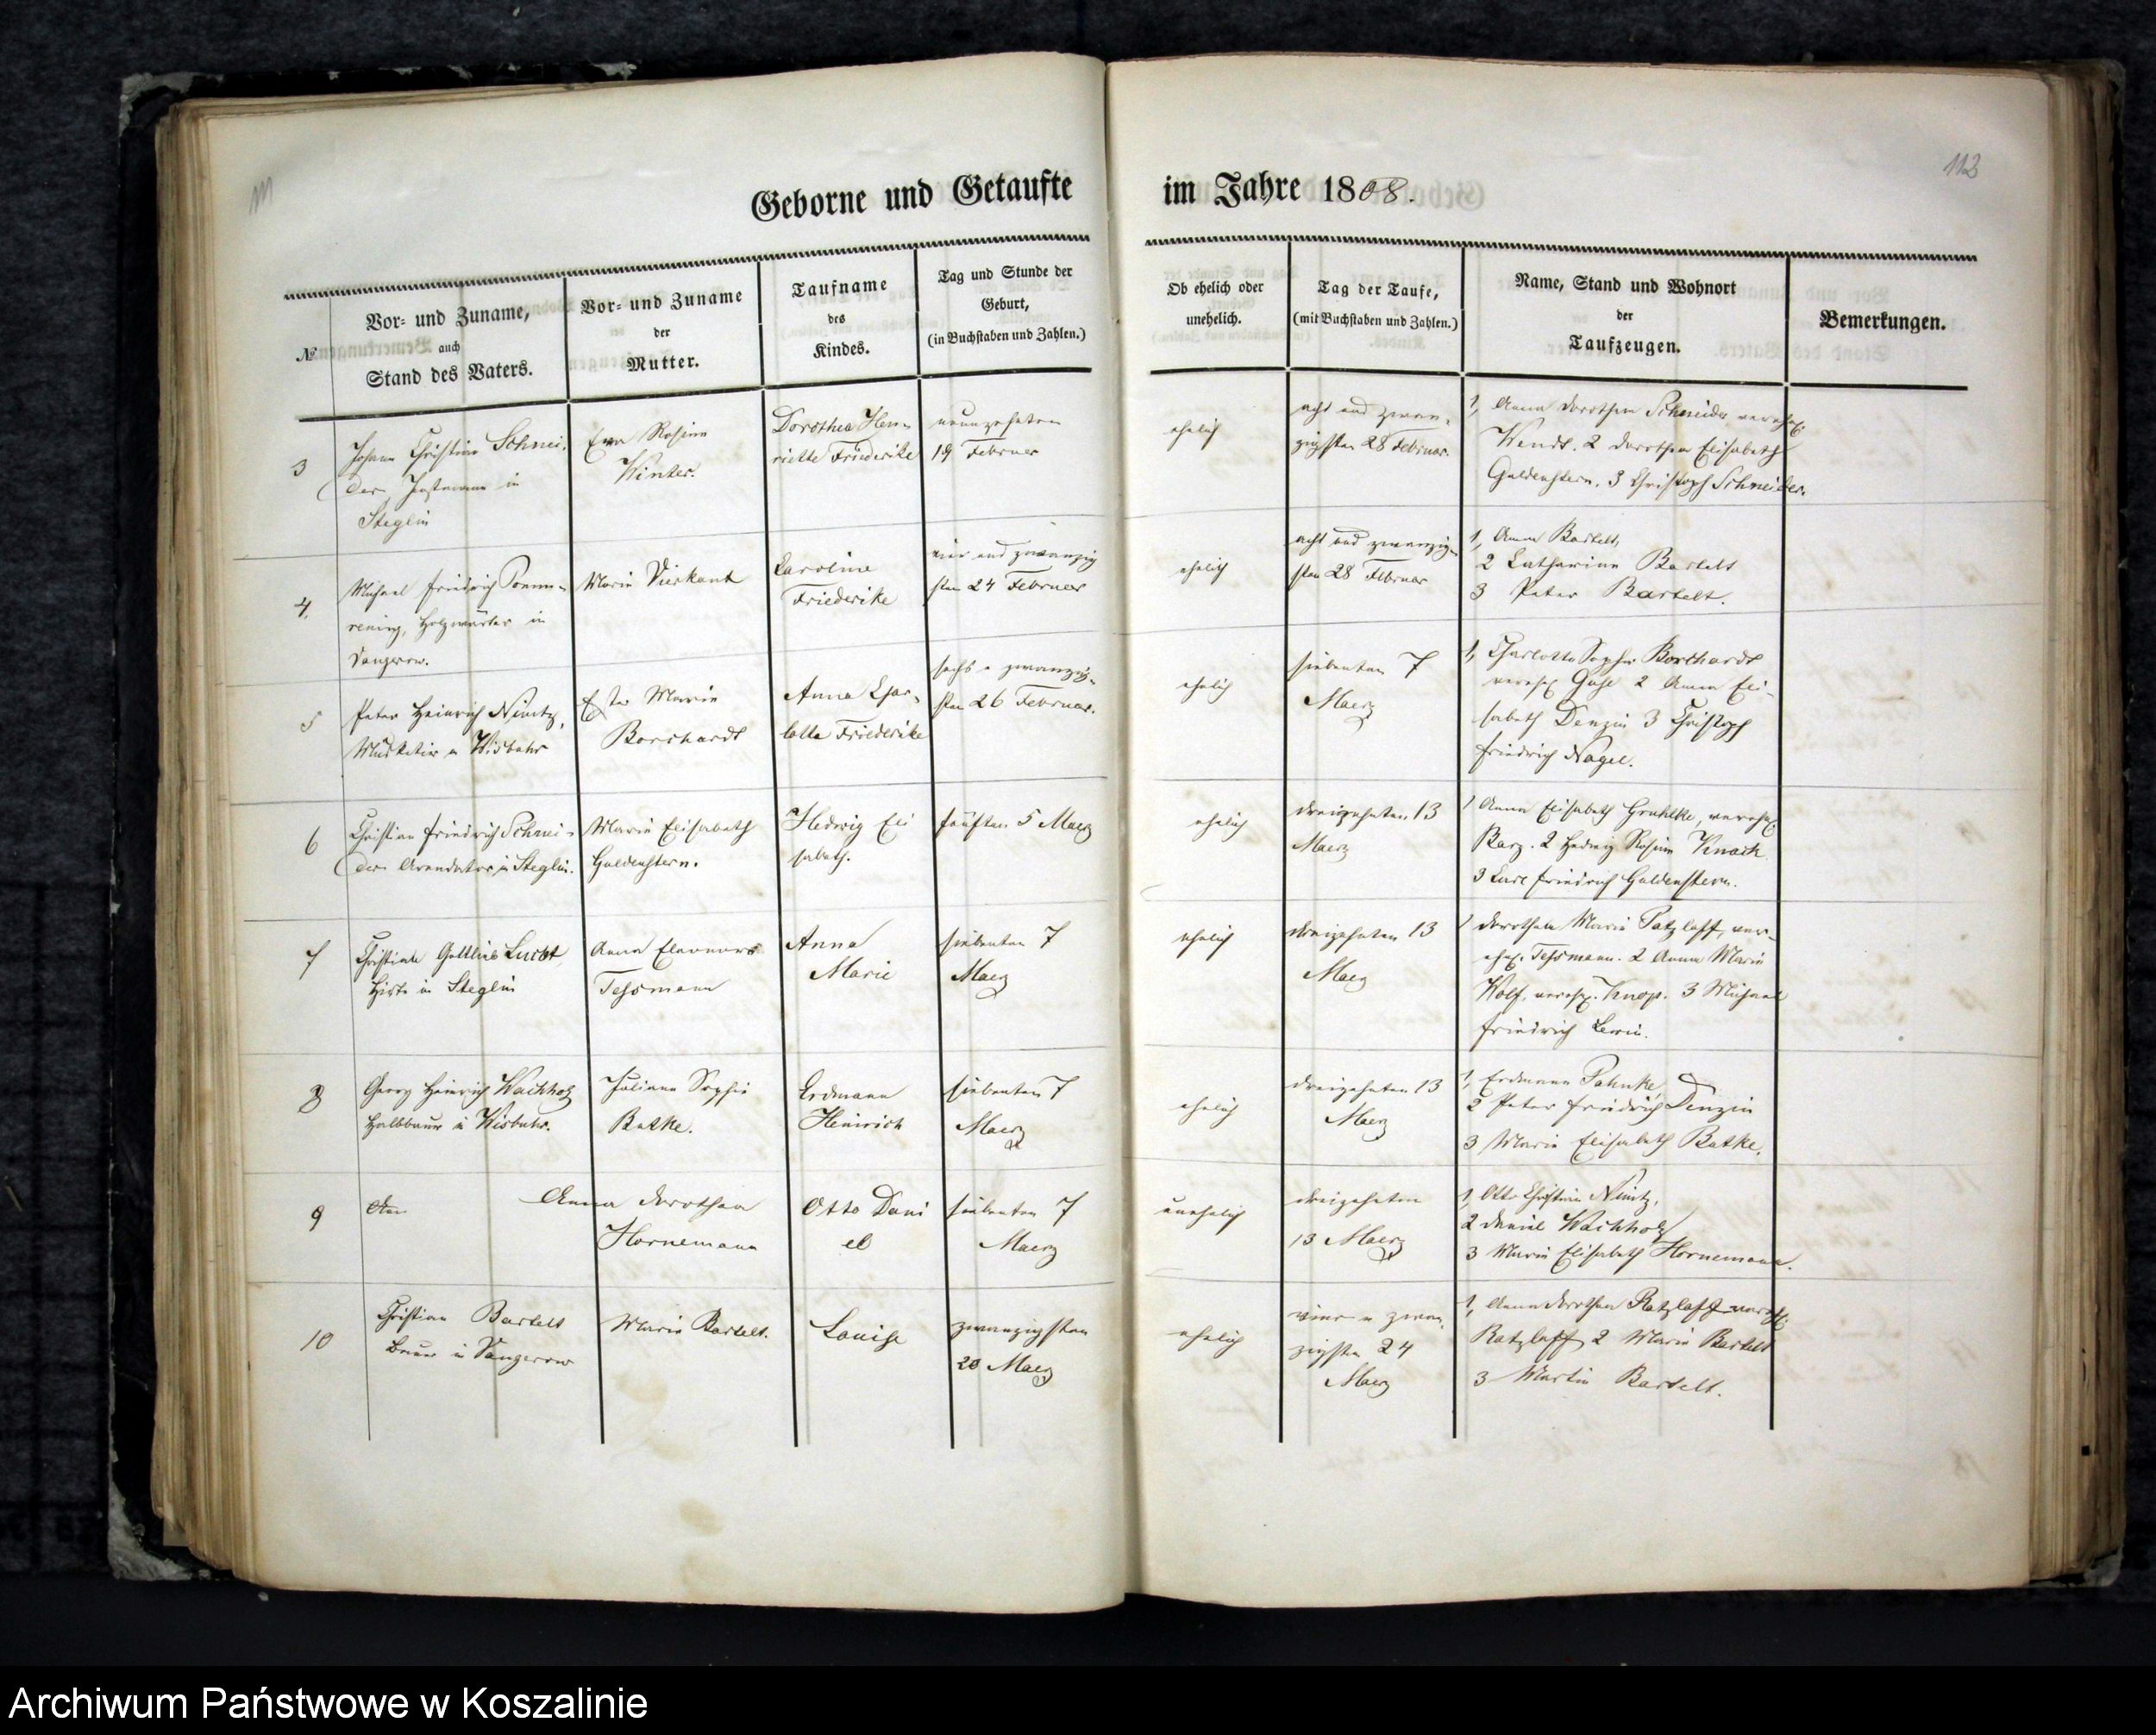 111
112
Geborne und Getaufte
im Jahre 1808.
№
Vor- und Zuname,
auch
Stand des Vaters.
Vor- und Zuname
der
Mutter.
Taufname
des
Kindes.
Tag und Stunde der
Geburt,
(in Buchstaben und Zahlen.)
Ob ehelich oder
unehelich.
Tag der Taufe,
(mit Buchstaben und Zahlen.)
Name, Stand und Wohnort
der
Taufzeugen.
Bemerkungen.
3
Johann Christian Schnei-
der, in
Steglin
Eva Rosine
Winter.
Dorothea Hen-
riette Friederike
neunzehnten
19 Februar
ehelich
acht und zwan-
zigsten 28 Februar.
1, Anna Dorothea Schneider verehel.
Wendt. 2 Dorothea Elisabeth
Guldenstern. 3 Christoph Schneider.
4.
Michael Friedrich Pomm-
rening, Holzwärter in
Vangerow.
Marie Vierkant
Caroline
Friederike
vier und zwanzig
sten 24 Februar
ehelich
acht und zwanzig-
sten 28 Februar
1, Anna Bartelt,
2 Catharina Bartelt
3 Peter Bartelt.
5
Peter Heinrich Nimtz,
Musketier in Wisbuhr
Ester Marie
Borchardt
Anna Char-
lotte Friederike
sechs u zwanzig-
sten 26 Februar.
ehelich
siebenten 7
Maerz
1, Charlotte Sophie Borchardt
verehel 2 Anna Eli-
sabeth Denzin 3 Christoph
Friedrich Nagel.
6
Christian Friedrich Schnei-
der Arendator in Steglin.
Marie Elisabeth
Guldenstern.
Hedwig Eli
sabeth.
fünften 5 Maerz
ehelich
dreizehnten 13
Maerz
1 Anna Elisabeth Grahlke, verehel
Barz. 2 Hedwig Rosine Knack
3 Carl Friedrich Guldenstern.
7
Christian Gottlieb Lucht
Hirte in Steglin
Anna Eleonore
Tessmann
Anna
Marie
siebenten 7
Maerz
ehelich
dreizehnten 13
Maerz
1 Dorothea Marie Patzlaff, ver-
ehel. Tessmann. 2 Anna Marie
Wolf, verehel. Knop. 3 Michael
Friedrich Lewin.
8
Georg Heinrich Wachholz
Halbbauer in Wisbuhr.
Juliane Sophie
Batke.
Erdmann
Heinrich
siebenten 7
Maerz
ehelich
dreizehnten 13
Maerz
1, Erdmann Pahnke,
2 Peter Friedrich Denzin
3 Marie Elisabeth Batke.
9
Anna Dorothea
Hornemann
Otto Dani
el
siebenten 7
Maerz
unehelich
dreizehnten
13 Maerz
1, Otto Christian Nimtz,
2 Daniel Wachholz
3 Marie Elisabeth Hornemann.
10
Christian Bartelt
Bauer in Vangerow
Marie Bartelt.
Louise
zwanzigsten
20 Maerz
ehelich
vier u zwan-
zigsten 24
Maerz
1, Anna Dorothea Ratzlaff verehel.
Ratzlaff 2 Marie Bartelt
3 Martin Bartelt.
Archiwum Państwowe w Koszalinie